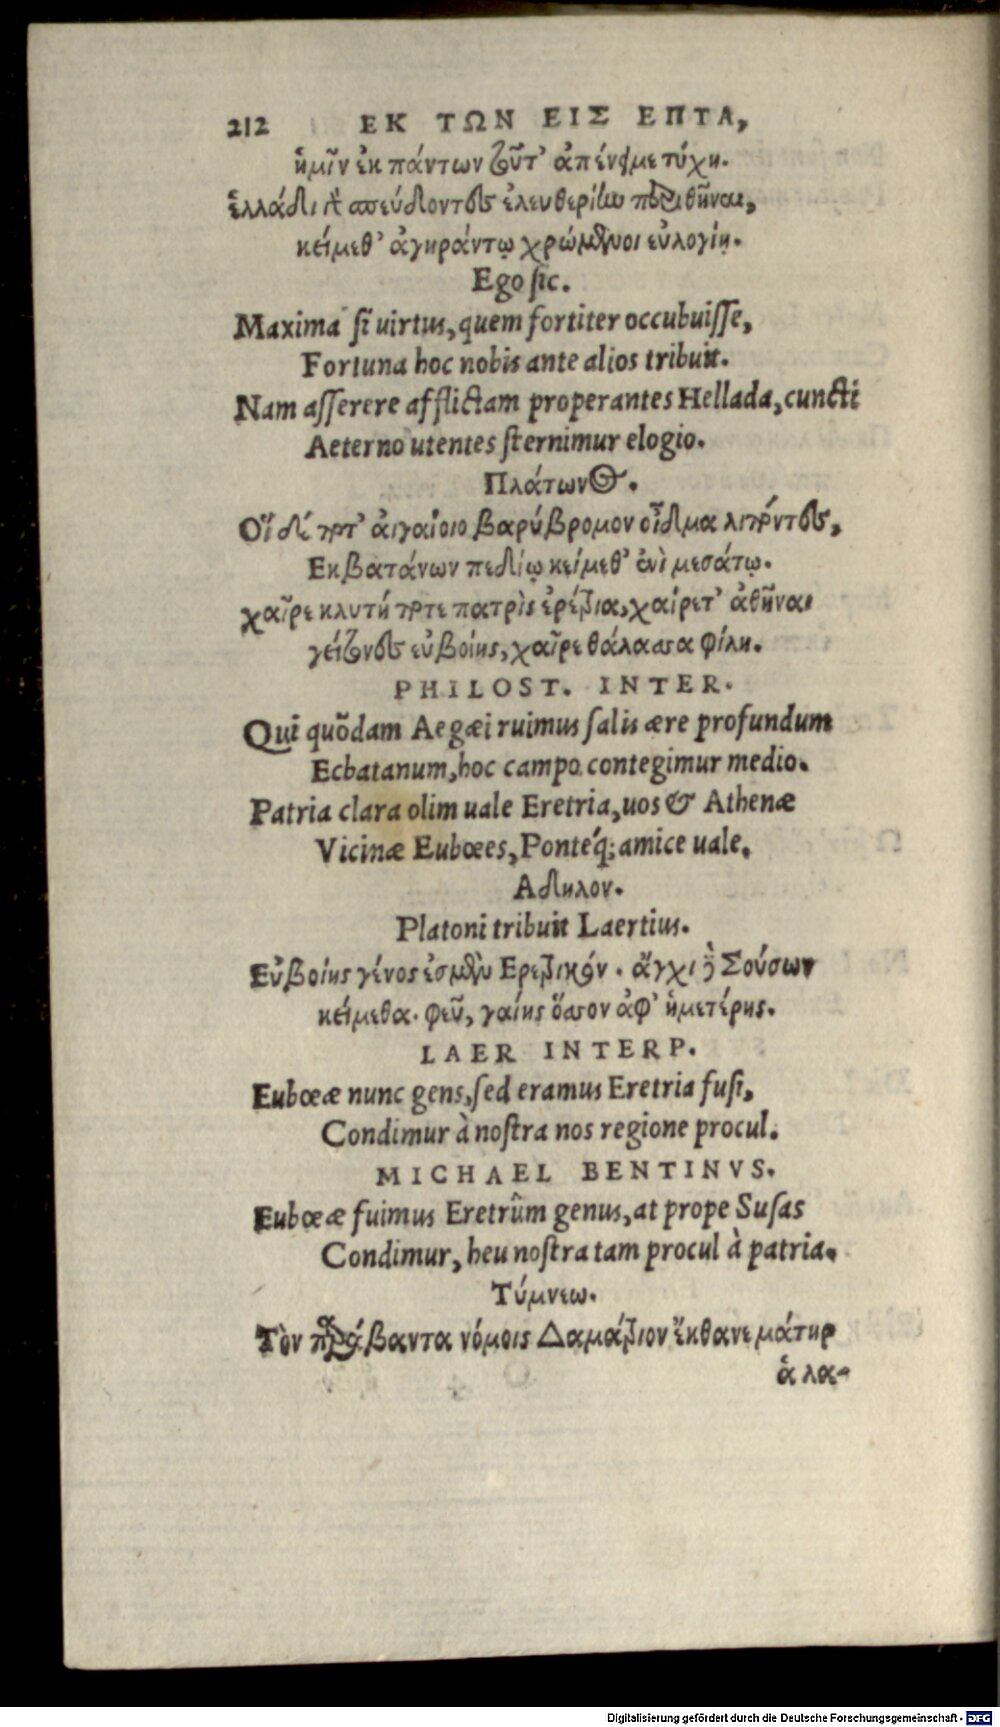 212 ΕΚ ΤΩΝ ΕΙΣ ΕΠΤΑ,
ἡμῖν ἐκ πάντων τοῦτ' ἀπένειμε τύχη.
ἑλλάδι γὰρ σπεύδοντες ἐλευθερίην περιθεῖναι,
κείμεθ' ἀγηράντῳ χρώμενοι εὐλογίῃ.
Ego sic.
Maxima si uirtus, quem fortiter occubuisse,
Fortuna hoc nobis ante alios tribuit.
Nam asserere afflictam properantes Hellada, cuncti
Aeterno utentes sternimur elogio.
Πλάτωνος.
Οἵ δέ ποτ' αἰγαίοιο βαρύβρομον οἶδμα λιπόντες,
Εκβατάνων πεδίῳ κείμεθ' ἐνὶ μεσάτῳ.
χαῖρε κλυτή ποτε πατρὶς ἐρέτρια, χαίρετ' ἀθῆναι
γείτονες εὐβοίης, χαῖρε θάλασσα φίλη.
PHILOST. INTER.
Qui quõdam Aegæi ruimus salis ære profundum
Ecbatanum, hoc campo contegimur medio.
Patria clara olim uale Eretria, uos & Athenæ
Vicinæ Eubœes, Ponteq́; amice uale.
Αδηλον.
Platoni tribuit Laertius.
Εὐβοίης γένος ἐσμὲν Ερετρικόν. ἄγχι δὲ Σούσων
κείμεθα. φεῦ, γαίης ὅσσον ἀφ' ἡμετέρης.
LAER INTERP.
Eubœæ nunc gens, sed eramus Eretria fusi,
Condimur à nostra nos regione procul.
MICHAEL BENTINVS.
Eubœæ fuimus Eretrûm genus, at prope Susas
Condimur, heu nostra tam procul à patria.
Τύμνεω.
Τὸν παραβάντα νόμοις Δαμάτριον ἔκθανε μάτηρ
ἁ λα-
Digitalisierung gefördert durch die Deutsche Forschungsgemeinschaft - DFG